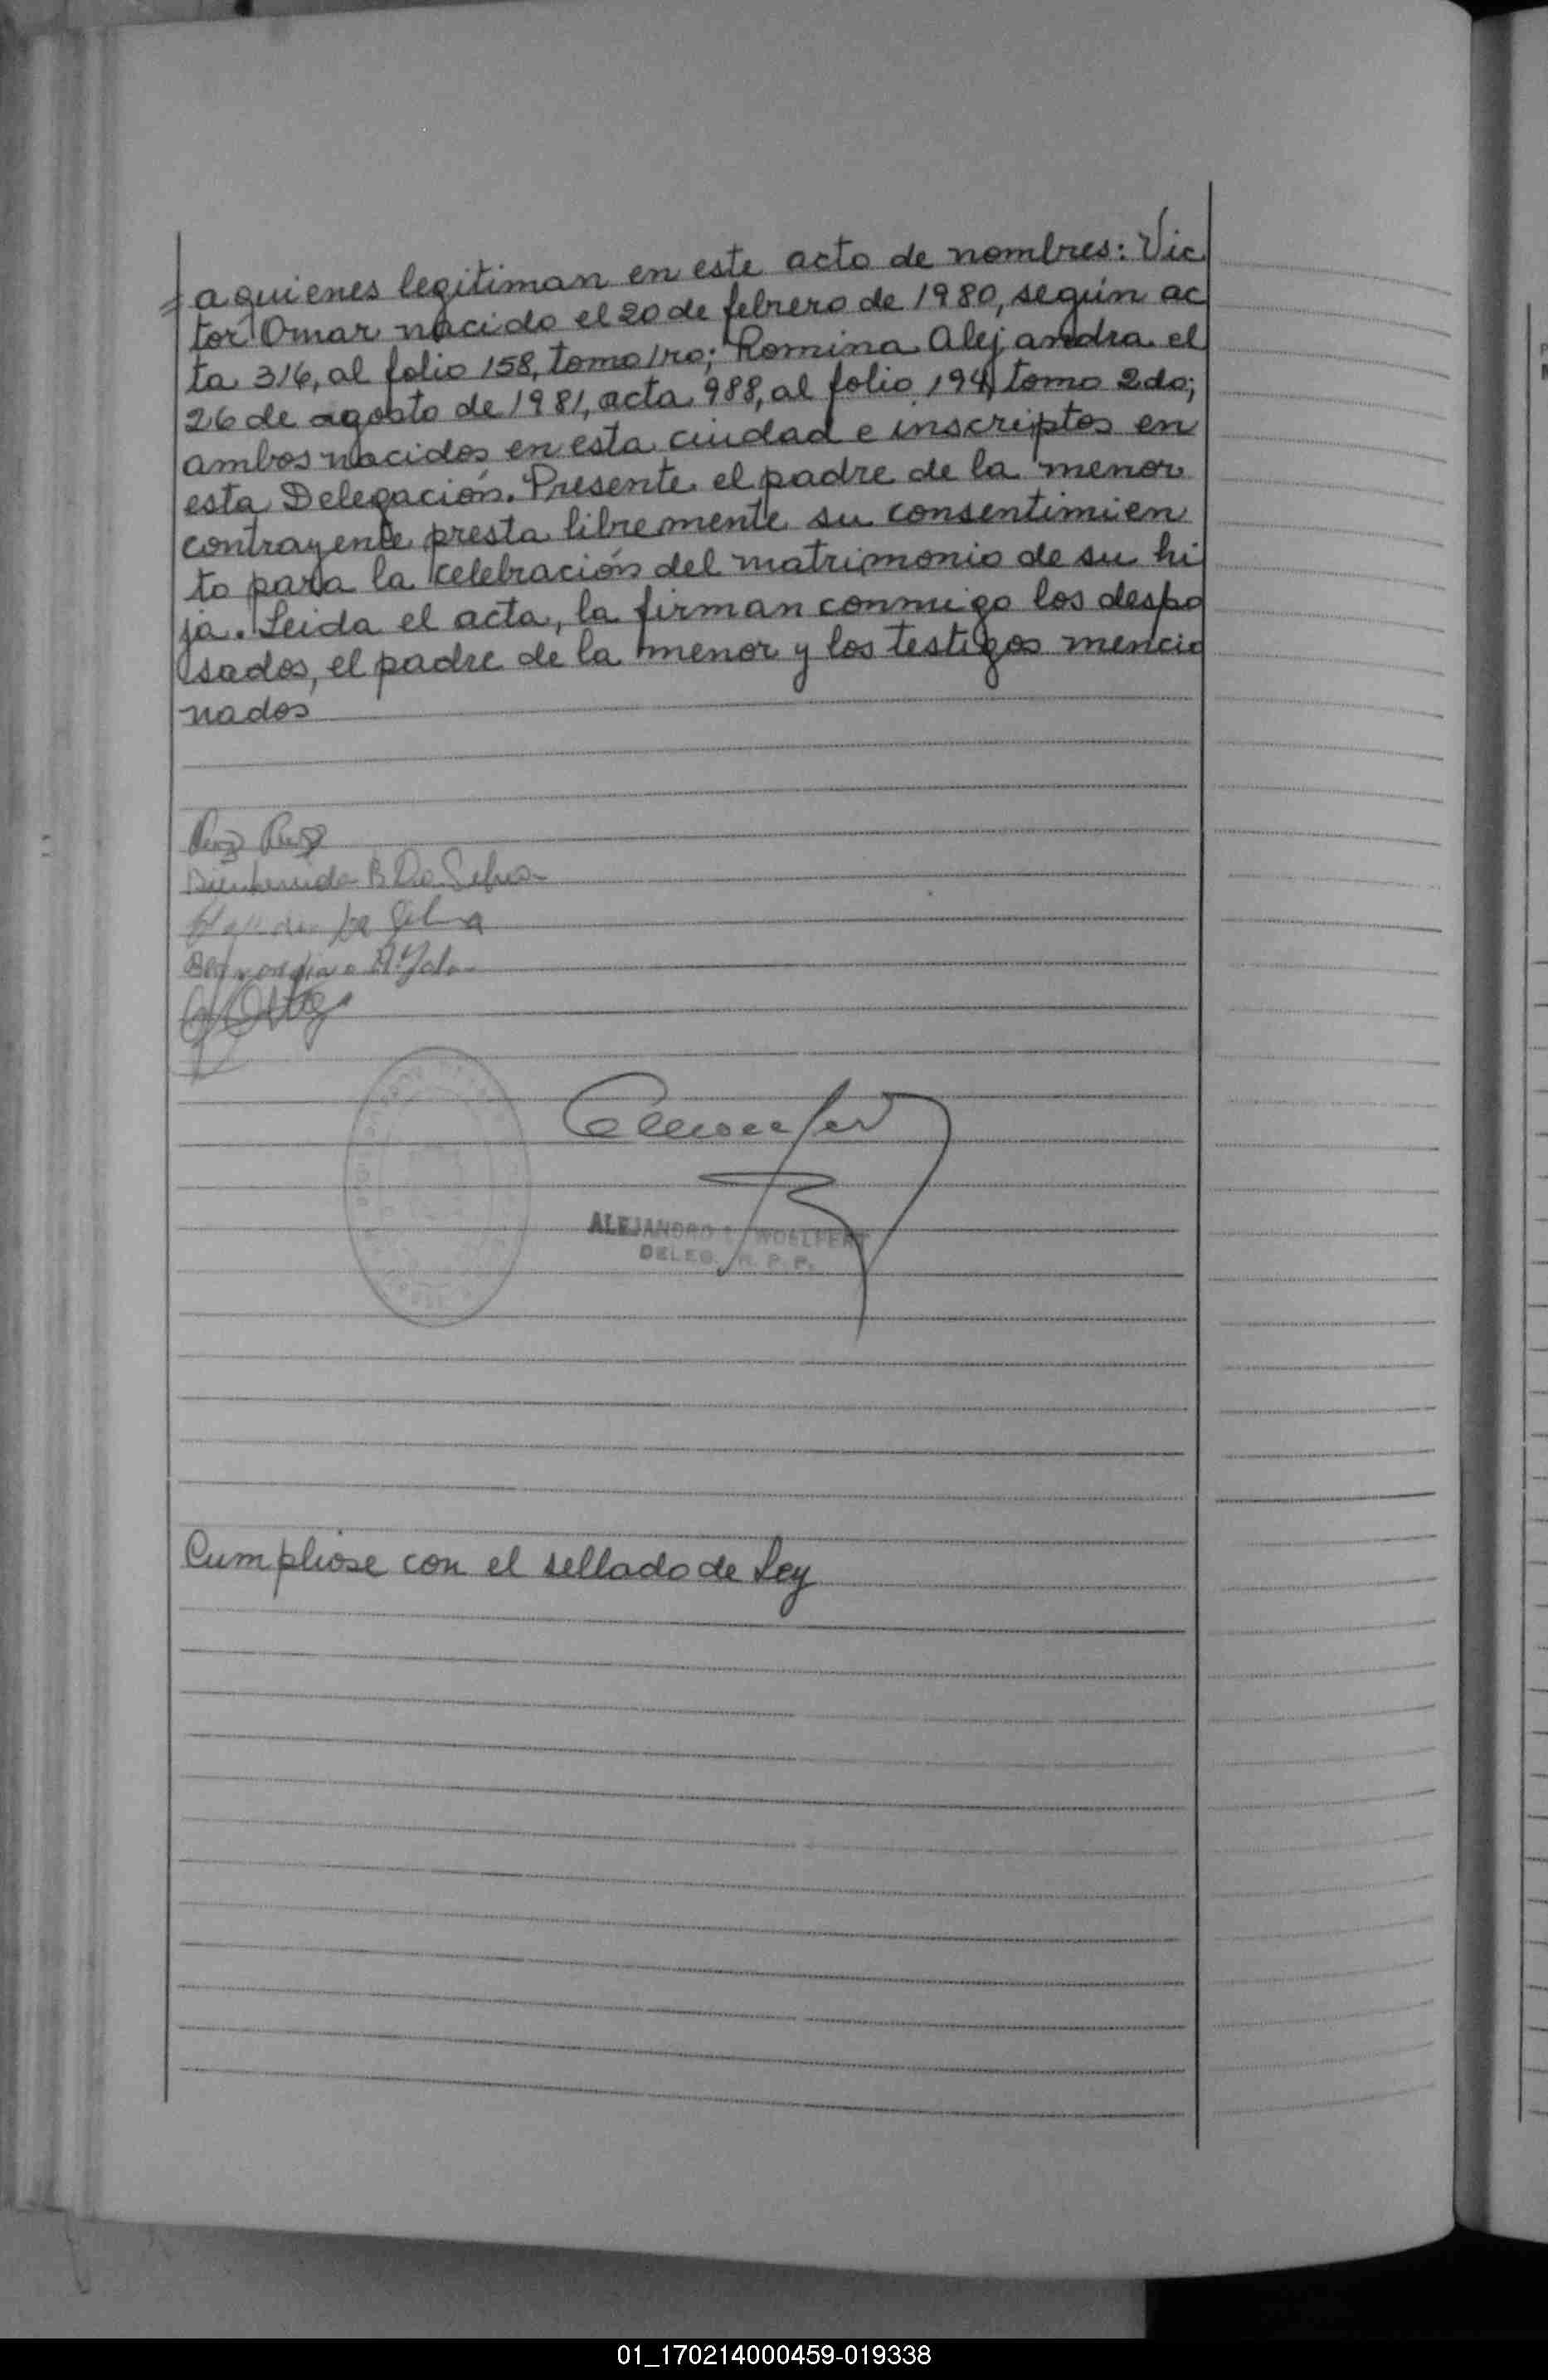 = a quienes legitiman en este acto de nombres: Vic
tor Omar nacido el 20 de febrero de 1980, según ac
ta 316, al folio 158, tomo 1ro; Romina Alejandra el
26 de agosto de 1981, acta 988, al folio 194, tomo 2do;
ambos nacidos en esta ciudad e inscriptos en
esta Delegación. Presente el padre de la menor
contrayente presta libremente su consentimien
to para la celebración del matrimonio de su hi
ja. Leida el acta, la firman conmigo los despo
sados, el padre de la menor y los testigos mencio
nados
Bienvenida B Da Silva
Da Silva
ALEJANDRO WOELFERT
DELEG. R. P. P.
Cumpliose con el sellado de Ley
01_170214000459-019338